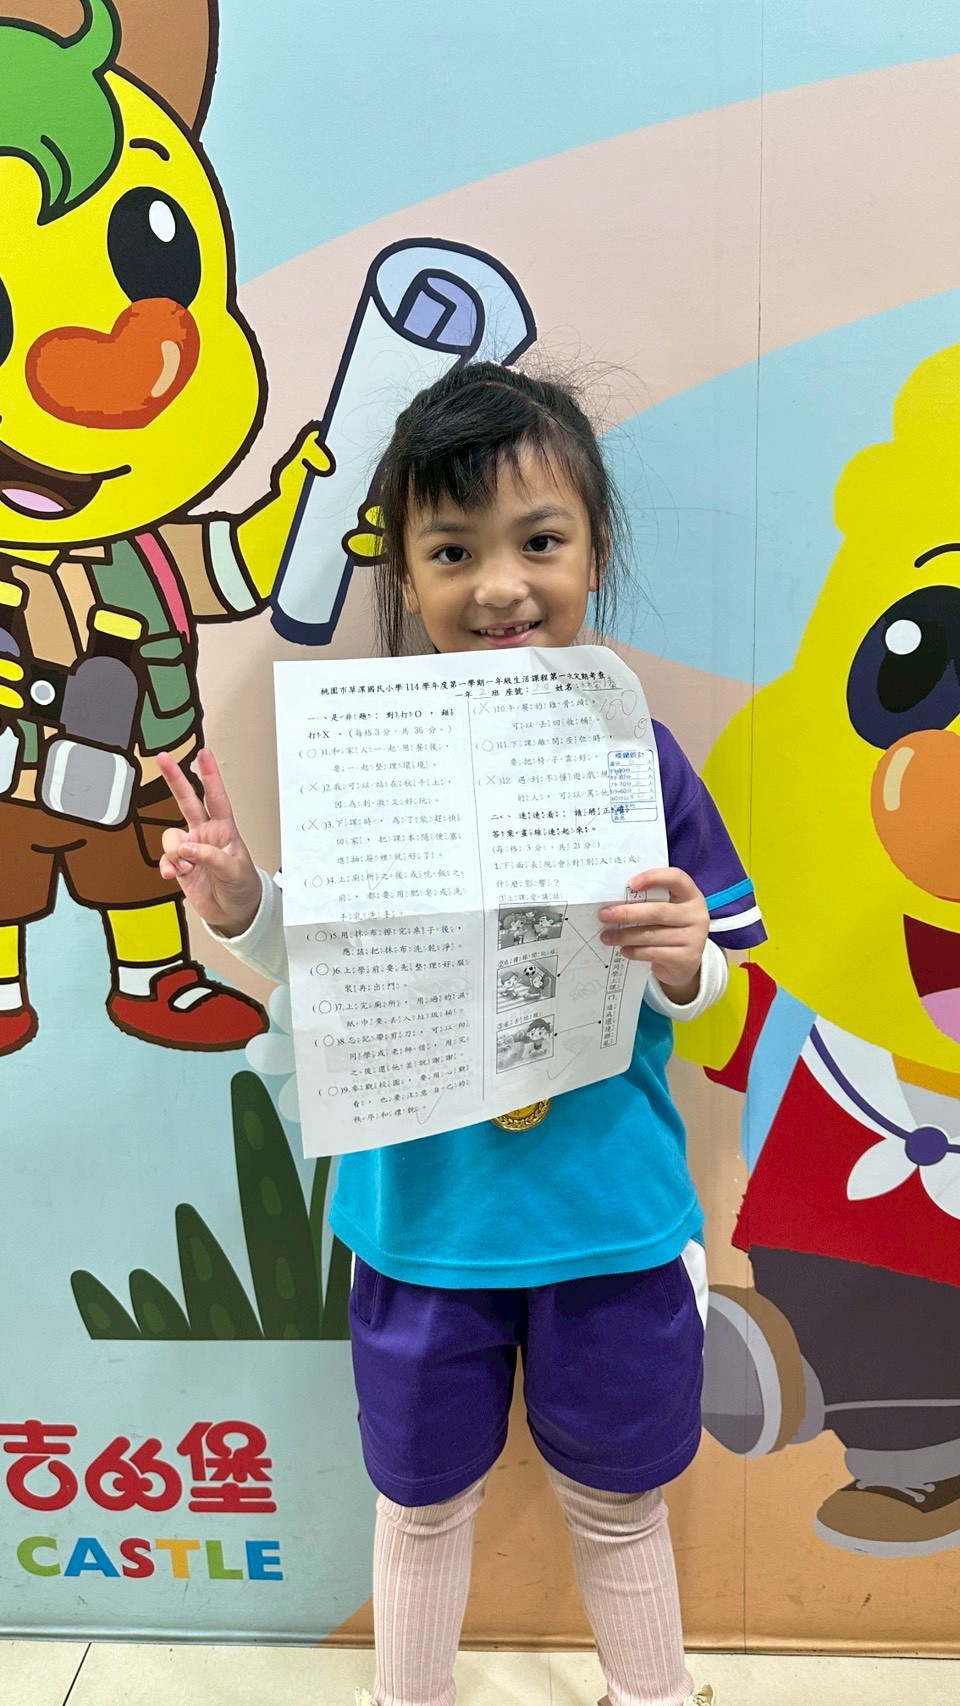 桃園市草漯國民小學 114 學年度第一學期一年級生活課程第一次定期考查
一年 2 班 座號：20 姓名：
一、是非題：對打O，錯
打X。（每格3分，共 36 分。）
(○)1.和家人一起用餐後，
要一起整理環境。
(X)2.我可以站在鞦韆上，
因為刺激又好玩。
(X)3.下課時，為了能趕快
回家，把課本隨便塞
進抽屜裡就好了。
(○)4.上廁所之後或吃飯之
前，都要用肥皂或洗
手乳洗手。
(○)5.用抹布擦完桌子後，
應該把抹布洗乾淨。
(○)6.上學前要先整理好服
裝再出門。
(○)7.上完廁所，用過的衛生
紙要丟入垃圾桶。
(○)8.忘記帶剪刀，可以向
同學或老師借，用完
之後還他並說謝謝。
(○)9.參觀校園，要用心觀
看，也要注意自己的
秩序和禮貌。
(X)10.午餐的雞骨頭，
可以丟回收桶。
(○)11.下課離開座位時，
要把椅子靠好。
(X)12.遇到不懂遊戲規
的人，可以罵他
二、連連看：請將正確
答案畫線連起來。
(每格 3 分，共 21 分)
1.下面表現會對別人造成
什麼影響？
①上課愛講話
100
吉的堡
CASTLE